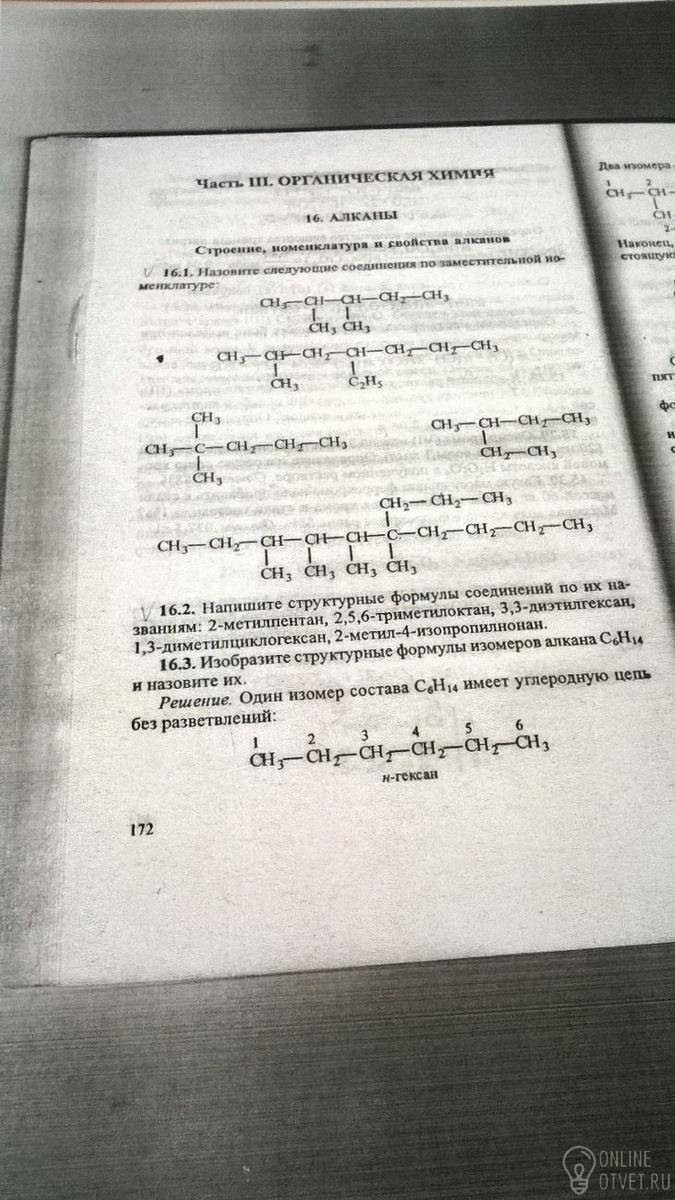 Часть III. ОРГАНИЧЕСКАЯ ХИМИЯ
16. АЛКАНЫ
Строение, номенклатура и свойства алканов
16.1. Назовите следующие соединения по заместительной но-
менклатуре:
CH₃—CH—CH—CH₂—CH₃
CH₃ CH₃
CH₃—CH—CH₂—CH—CH₂—CH₂—CH₃
CH₃ C₂H₅
CH₃
CH₃—C—CH₂—CH₂—CH₃
CH₃
CH₃—CH—CH₂—CH₃
CH₂—CH₃
CH₂—CH₂—CH₃
CH₃—CH₂—CH—CH—CH—C—CH₂—CH₂—CH₂—CH₃
CH₃ CH₃ CH₃ CH₃
16.2. Напишите структурные формулы соединений по их на-
званиям: 2-метилпентан, 2,5,6-триметилоктан, 3,3-диэтилгексан,
1,3-диметилциклогексан, 2-метил-4-изопропилнонан.
16.3. Изобразите структурные формулы изомеров алкана C₆H₁₄
и назовите их.
Решение. Один изомер состава C₆H₁₄ имеет углеродную цепь
без разветвлений:
1 2 3 4 5 6
CH₃—CH₂—CH₂—CH₂—CH₂—CH₃
н-гексан
172
Два изомера
1 2
CH₃—CH—
CH
Наконец,
стоящую
ONLINE
OTVET.RU